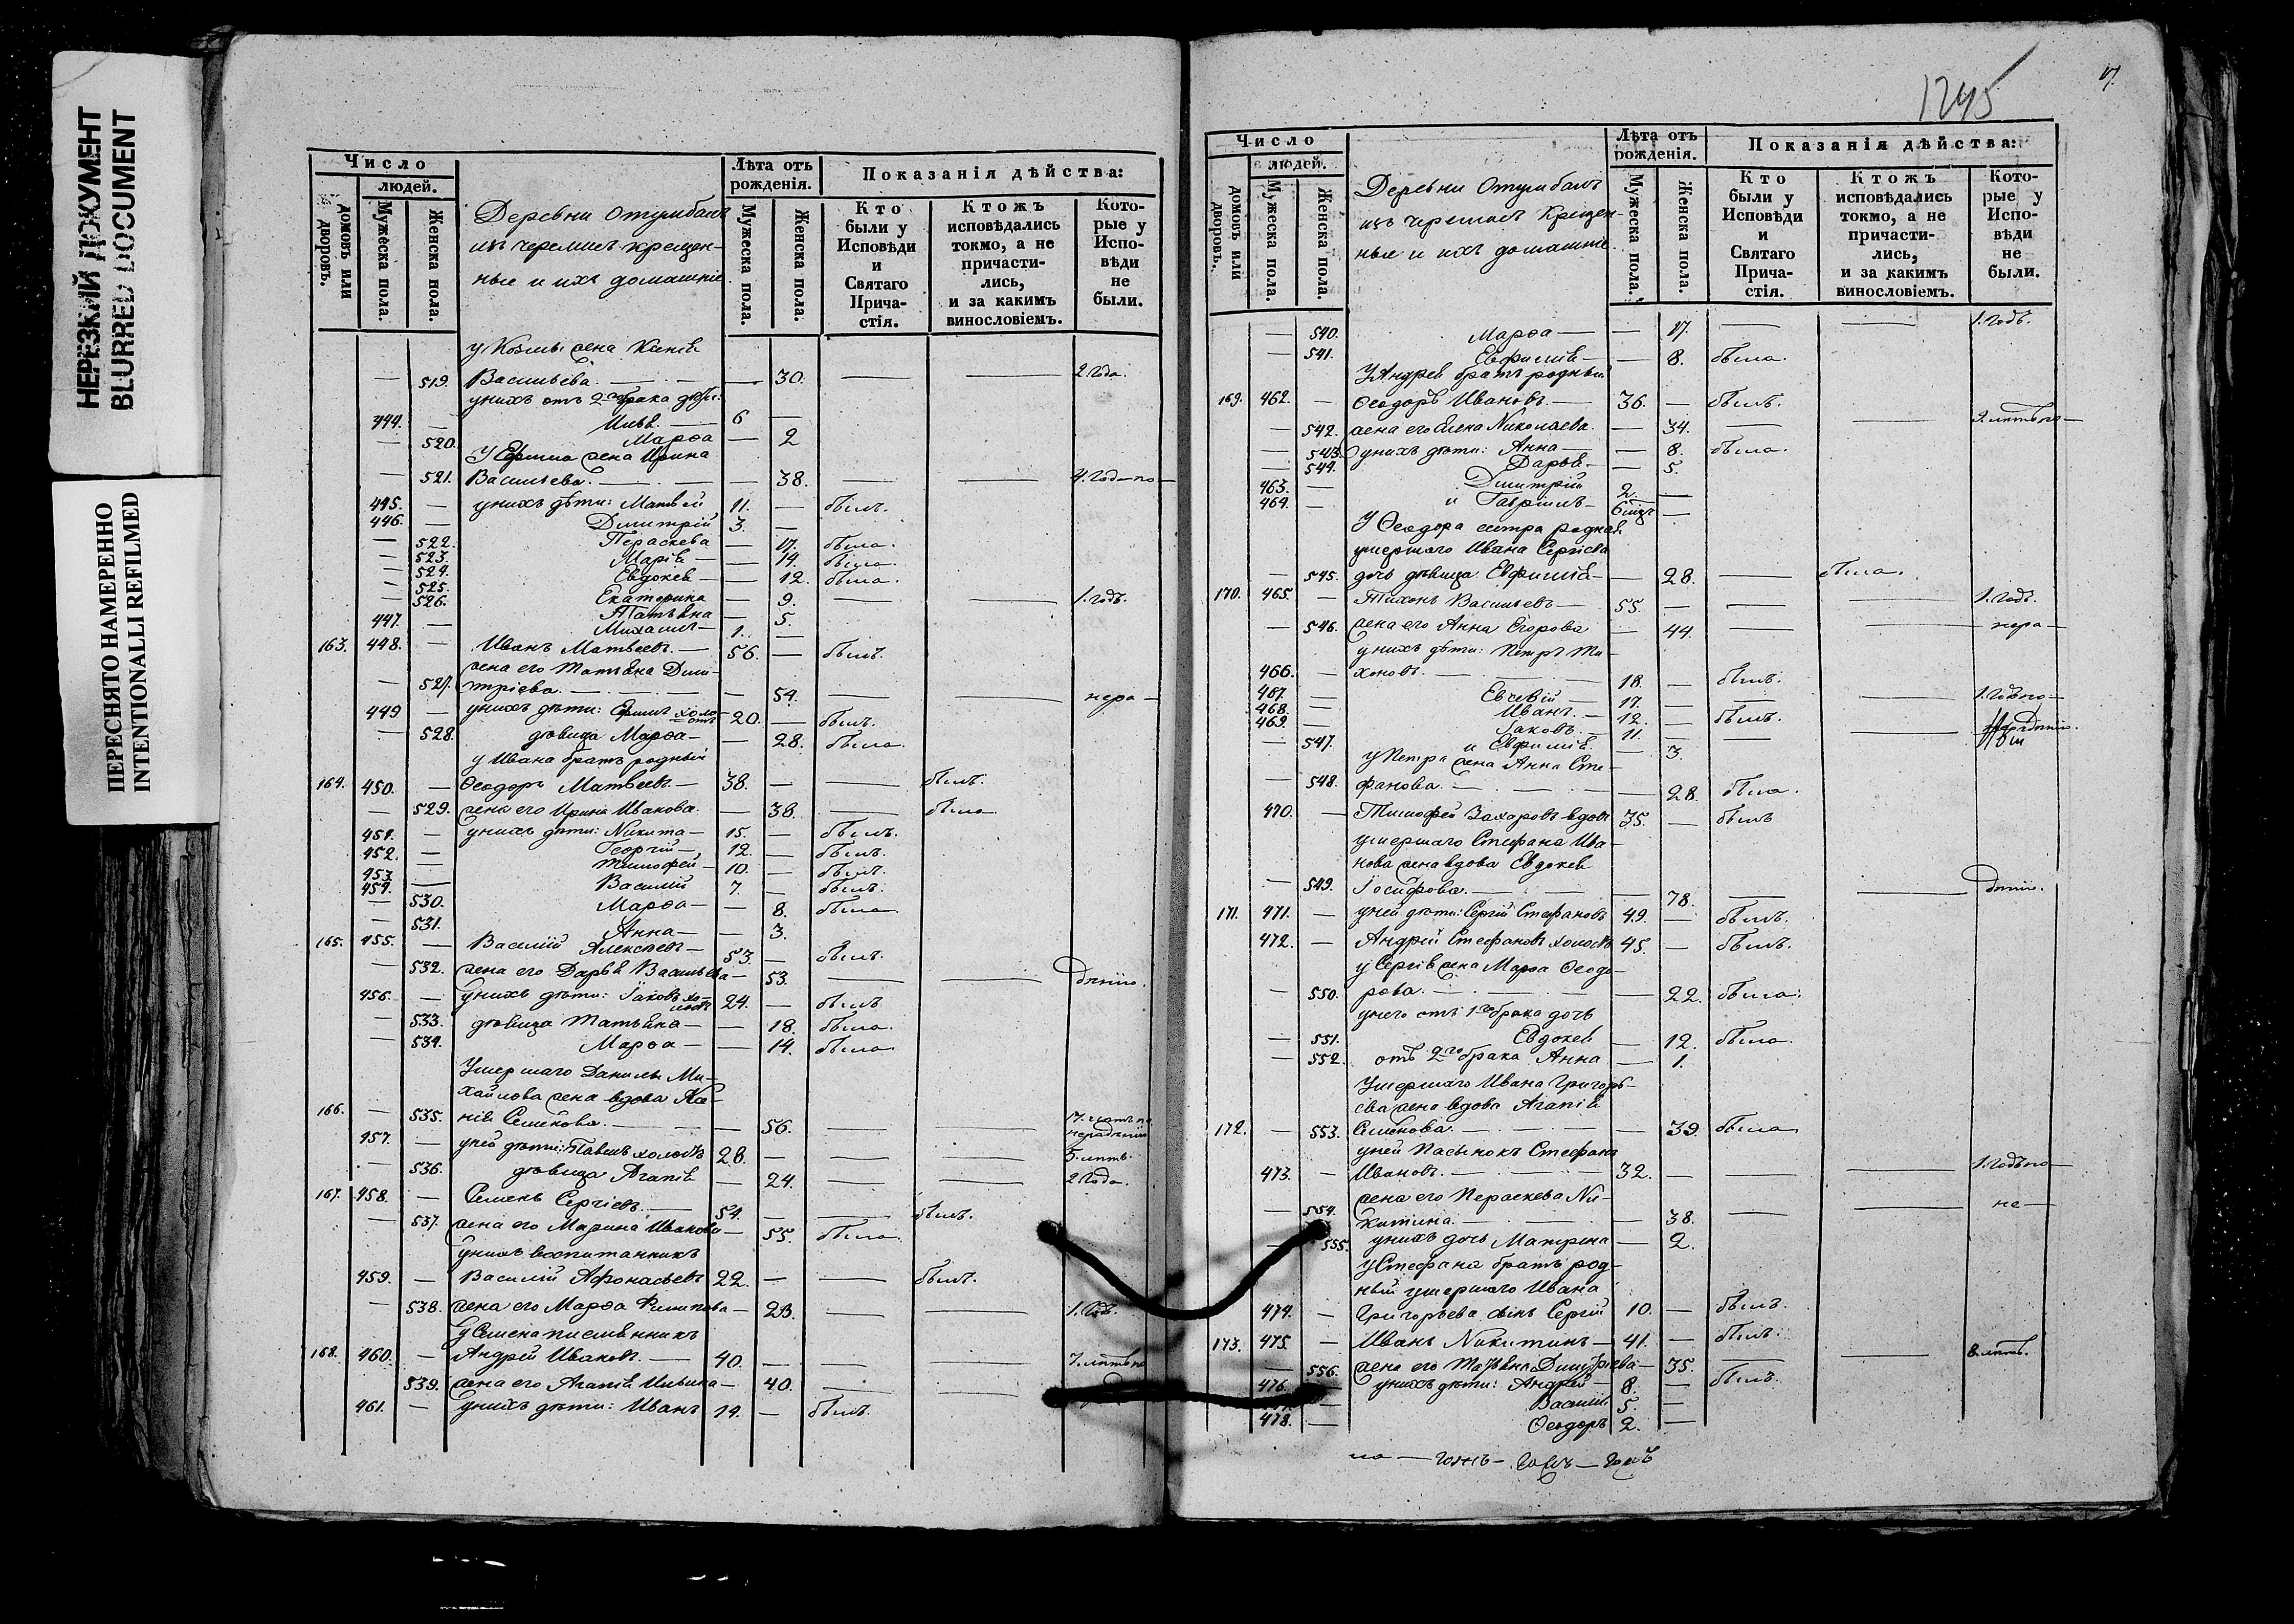 НЕРЕЗКИЙ ДОКУМЕНТ
BLURRED DOCUMENT
ПЕРЕСНЯТО НАМЕРЕННО
INTENTIONALLI REFILMED
Число
людей.
домовъ или дворовъ.
Мужеска пола.
Женска пола.
Деревни Отымбалъ
изъ черемисъ крещен-
ные и ихъ домашніе
Лѣта отъ рожденія.
Мужеска пола.
Женска пола.
Показанія дѣйства:
Кто были у Исповѣди и Святаго Прича-стія.
Ктожъ исповѣдались токмо, а не причасти-лись, и за какимъ винословіемъ.
Кото-рые у Испо-вѣди не были.
у Козмы жена Ксенія
— 519. Васильева. — — 30. — — 2 года.
у нихъ отъ 2го брака дѣти:
444. — Илья. — 6 —
— 520. Марѳа — 2
У Ефима жена Ирина
— 521. Васильева. — — 38. — — 4. года по —
445. — у нихъ дѣти: Матвей 11. — былъ.
446. — Димитрій 3. —
— 522. Параскева — 17. была.
— 523. Марія — 14. была.
— 524. Евдокея — 12. была.
— 525. Екатерина — 9. — — 1. годъ.
— 526. Татьяна — 5.
447. — Михаилъ — 1. —
163. 448. — Иванъ Матвеевъ. — 56. — былъ.
жена его Татьяна Дми-
— 527. тріева. — — 54. — — нера —
449 — у нихъ дѣти: Ефимъ холо-стъ 20. — былъ.
— 528. дѣвица Марѳа — — 28. была.
у Ивана братъ родный
164. 450. — Ѳеодоръ Матвеевъ — 38. — — былъ.
— 529. жена его Ирина Иванова. — 38. — была
451. — у нихъ дѣти: Никита — 15. — былъ.
452. — Георгій — 12. — былъ.
453 — Тимофей — 10. — былъ.
454. — Василій 7. — былъ.
— 530. Марѳа — — 8. была.
— 531. Анна — — 3.
165. 455. — Василій Алексѣевъ — 53. — былъ.
— 532. жена его Дарья Васильева — 53. — —
456. — у нихъ дѣти: Іаковъ хо-лостъ 24. — былъ
— 533. дѣвица Татьяна — — 18. была.
— 534. Марѳа — — 14. была
Умершаго Данилы Ми-
хайлова жена вдова Ксе-
166. — 535. нія Семенова. — — 56. — —
457. — у ней дѣти: Павелъ холостъ 28. — — — 5. лѣтъ.
— 536. дѣвица Агапія — 24. — — 2 года.
167. 458. — Семенъ Сергіевъ. — 54. — — былъ.
— 537. жена его Марина Иванова — 55. была.
у нихъ воспитанникъ
459. — Василій Афонасьевъ 22. — — былъ.
— 538. жена его Марѳа Филипова — 23. — — 1. годъ.
у Семена племянникъ
168. 460. — Андрей Ивановъ. — 40. — — — 7. лѣтъ по
539. жена его Агапія Ильина — 40. — —
461. — у нихъ дѣти: Иванъ 14. — былъ.
1245
17.
Число
людей.
домовъ или дворовъ.
Мужеска пола.
Женска пола.
Деревни Отымбалъ
изъ черемисъ крещен-
ные и ихъ домашніе
Лѣта отъ рожденія.
Мужеска пола.
Женска пола.
Показанія дѣйства:
Кто были у Исповѣди и Святаго Прича-стія.
Ктожъ исповѣдались токмо, а не причасти-лись, и за какимъ винословіемъ.
Кото-рые у Испо-вѣди не были.
— 540. Марѳа — — 17. — — 1. годъ.
— 541. Евфимія — — 8. была.
У Андрея братъ родный
169. 462. — Ѳеодоръ Ивановъ. — 36. — былъ.
— 542. жена его Елена Николаева. — 34. — — 2. лѣтъ по —
— 543. у нихъ дѣти: Анна — — 8. была.
— 544. Дарья — — 5.
463. — Димитрій 2. —
464. — и Гавріилъ — 6 мѣц —
У Ѳеодора сестра родная
умершаго Ивана Сергіева
— 545. дочь дѣвица Евфимія — — 28. — была.
170. 465. — Тихонъ Васильевъ — 55. — — — 1. годъ.
— 546. жена его Анна Егорова — 44. — — нера —
у нихъ дѣти: Петръ Ти-
466. — хоновъ. — 18. — былъ.
467. — Евсевій — 17. — — 1. годъ по —
468. — Иванъ. — 12. — былъ.
469. — Іаковъ. — 11. — —
— 547. и Евфимія — 3.
у Петра жена Анна Сте-
— 548. фанова. — — 28. была.
470. — Тимофей Захаровъ вдовъ 35. — былъ
умершаго Стефана Ива-
нова жена вдова Евдокея
— 549. Іосифова. — — 78. — —
171. 471. — у ней дѣти: Сергій Стефановъ 49. — былъ.
472. — Андрей Стефановъ холостъ 45. — былъ.
у Сергія жена Марѳа Ѳеодо-
— 550. рова. — — 22. была.
у него отъ 1го брака дочь
— 551. Евдокея — 12. была.
— 552. отъ 2го брака Анна — 1.
Умершаго Ивана Григорь-
ева жена вдова Агапія
172. — 553. Семенова. — — 39. была
у ней пасынокъ Стефанъ
473. — Ивановъ. — 32. — — — 1. годъ по —
жена его Пераскева Ни-
— 554. китина. — — 38. — — не —
— 555. у нихъ дочь Матрена — 2.
у Стефана братъ род-
ный умершаго Ивана
474. — Григорьева сынъ Сергій 10. — былъ.
173. 475. — Иванъ Никитинъ — 41. — былъ.
— 556. жена его Татьяна Димитріева — 35. — — 8. лѣтъ.
476. — у нихъ дѣти: Андрей — 8. — былъ.
— Василій 5. —
478. — Ѳеодоръ 2. —